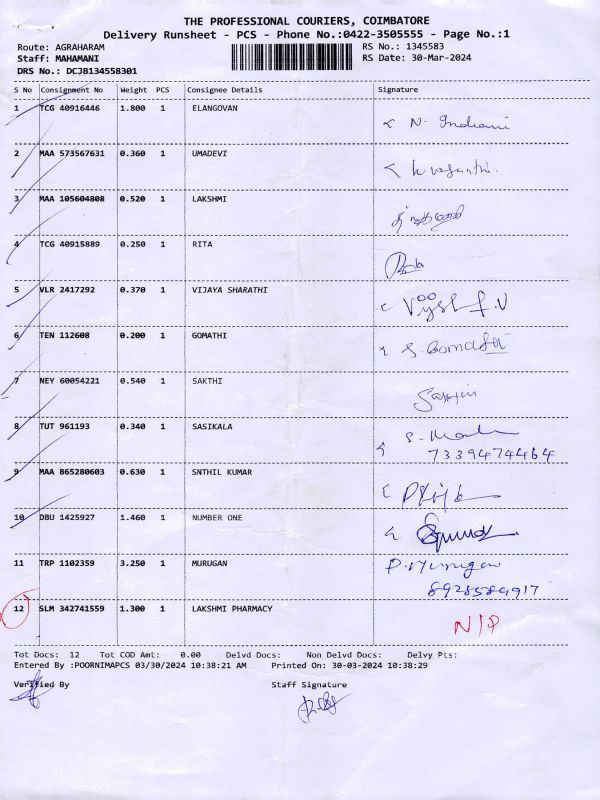 THE PROFESSIONAL COURIERS, COIMBATORE
Delivery Runsheet - PCS - Phone No.:0422-3505555 - Page No.:1
Route: AGRAHARAM RS No.: 1345583
Staff: MAHAMANI RS Date: 30-Mar-2024
DRS No.: DCJB134558301
S No Consignment No Weight PCS Consignee Details Signature
1 TCG 40916446 1.800 1 ELANGOVAN N. Indrani
2 MAA 573567631 0.360 1 UMADEVI
3 MAA 105604808 0.520 1 LAKSHMI
4 TCG 40915889 0.250 1 RITA
5 VLR 2417292 0.370 1 VIJAYA SHARATHI
6 TEN 112608 0.200 1 GOMATHI S. Gomathi
7 NEY 60054221 0.540 1 SAKTHI
8 TUT 961193 0.340 1 SASIKALA
7339474464
9 MAA 865280603 0.630 1 SNTHIL KUMAR
10 DBU 1425927 1.460 1 NUMBER ONE
11 TRP 1102359 3.250 1 MURUGAN P. Murugan
12 SLM 342741559 1.300 1 LAKSHMI PHARMACY
Tot Docs: 12 Tot COD Amt: 0.00 Delvd Docs: Non_Delvd Docs: Delvy Pts:
Entered By :POORNIMAPCS 03/30/2024 10:38:21 AM Printed On: 30-03-2024 10:38:29
Verified By Staff Signature